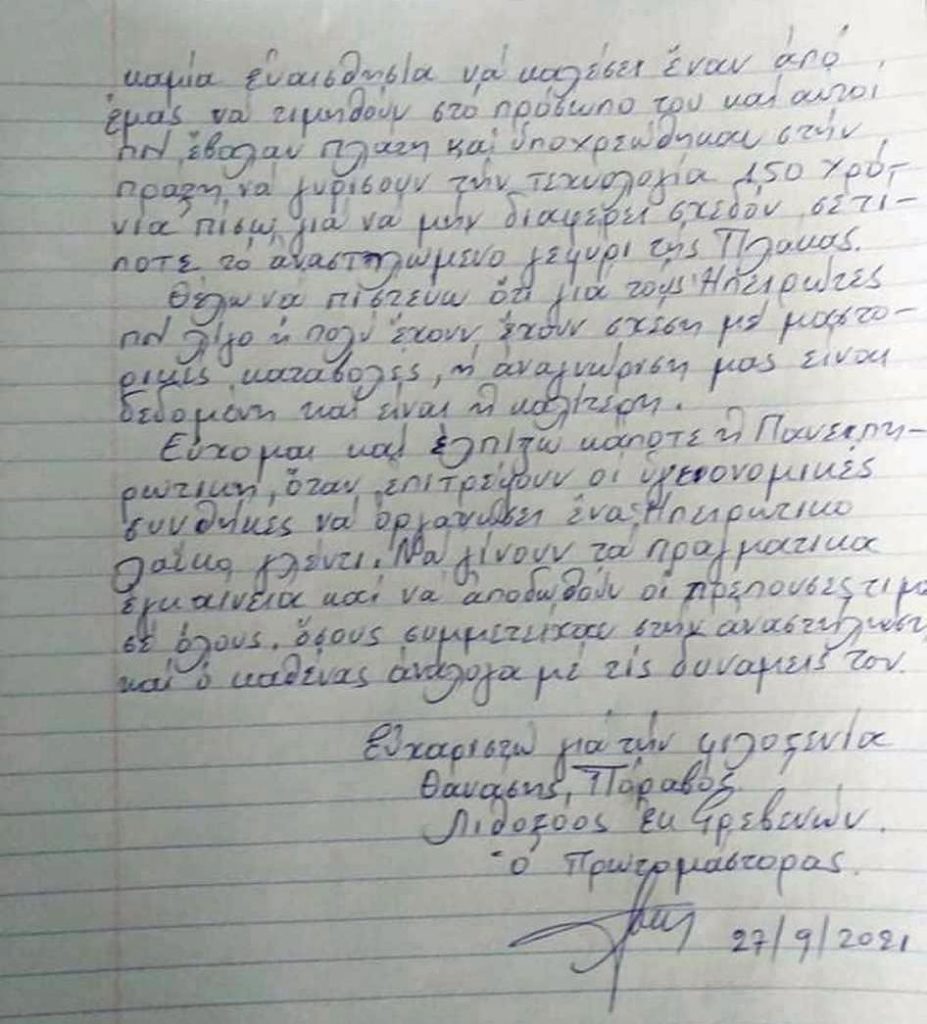 καμία εὐαισθησία νά καλέσει ἕναν ἀπό
ἐμάς νά τιμηθοῦν στό πρόσωπό του καί αυτοί
πού ἔβαλαν πλάτη καί ὑποχρεώθηκαν στήν
πράξη νά γυρίσουν τήν τεχνολογία 150 χρό-
νια πίσω γιά νά μήν διαφέρει σχεδόν σέ τί-
ποτε τό ἀναστηλωμένο γεφύρι τῆς Πλάκας.
Θέλω νά πιστεύω ὅτι γιά τούς Ἠπειρώτες
πού λίγο ἤ πολύ ἔχουν ἔχουν σχέση μέ μαστο-
ρικές καταβολές, ἡ ἀναγνώριση μας εἶναι
δεδομένη καί εἶναι ἡ καλίτερη.
Εὔχομαι καί ἐλπίζω κάποτε ἡ Πανειπη-
ρωτική, ὅταν ἐπιτρέψουν οἱ ὑγειονομικές
συνθῆκες νά ὀργανώσει ἕνα Ἠπειρώτικο
λαϊκό γλέντι. Νά γίνουν τά πραγματικά
ἐγκαίνεια καί νά ἀποδωθοῦν οἱ πρέπουσες τιμέ
σέ ὅλους, ὅσους συμμετεῖχαν στήν αναστήλωση,
καί ὁ καθένας ἀνάλογα μέ τίς δυνάμεις του.
Εὐχαριστῶ γιά τήν φιλοξενία
Θανάσης Πόραβος
Λιθοξόος ἐκ Γρεβενών.
ὁ Πρωτομάστορας.
27/9/2021